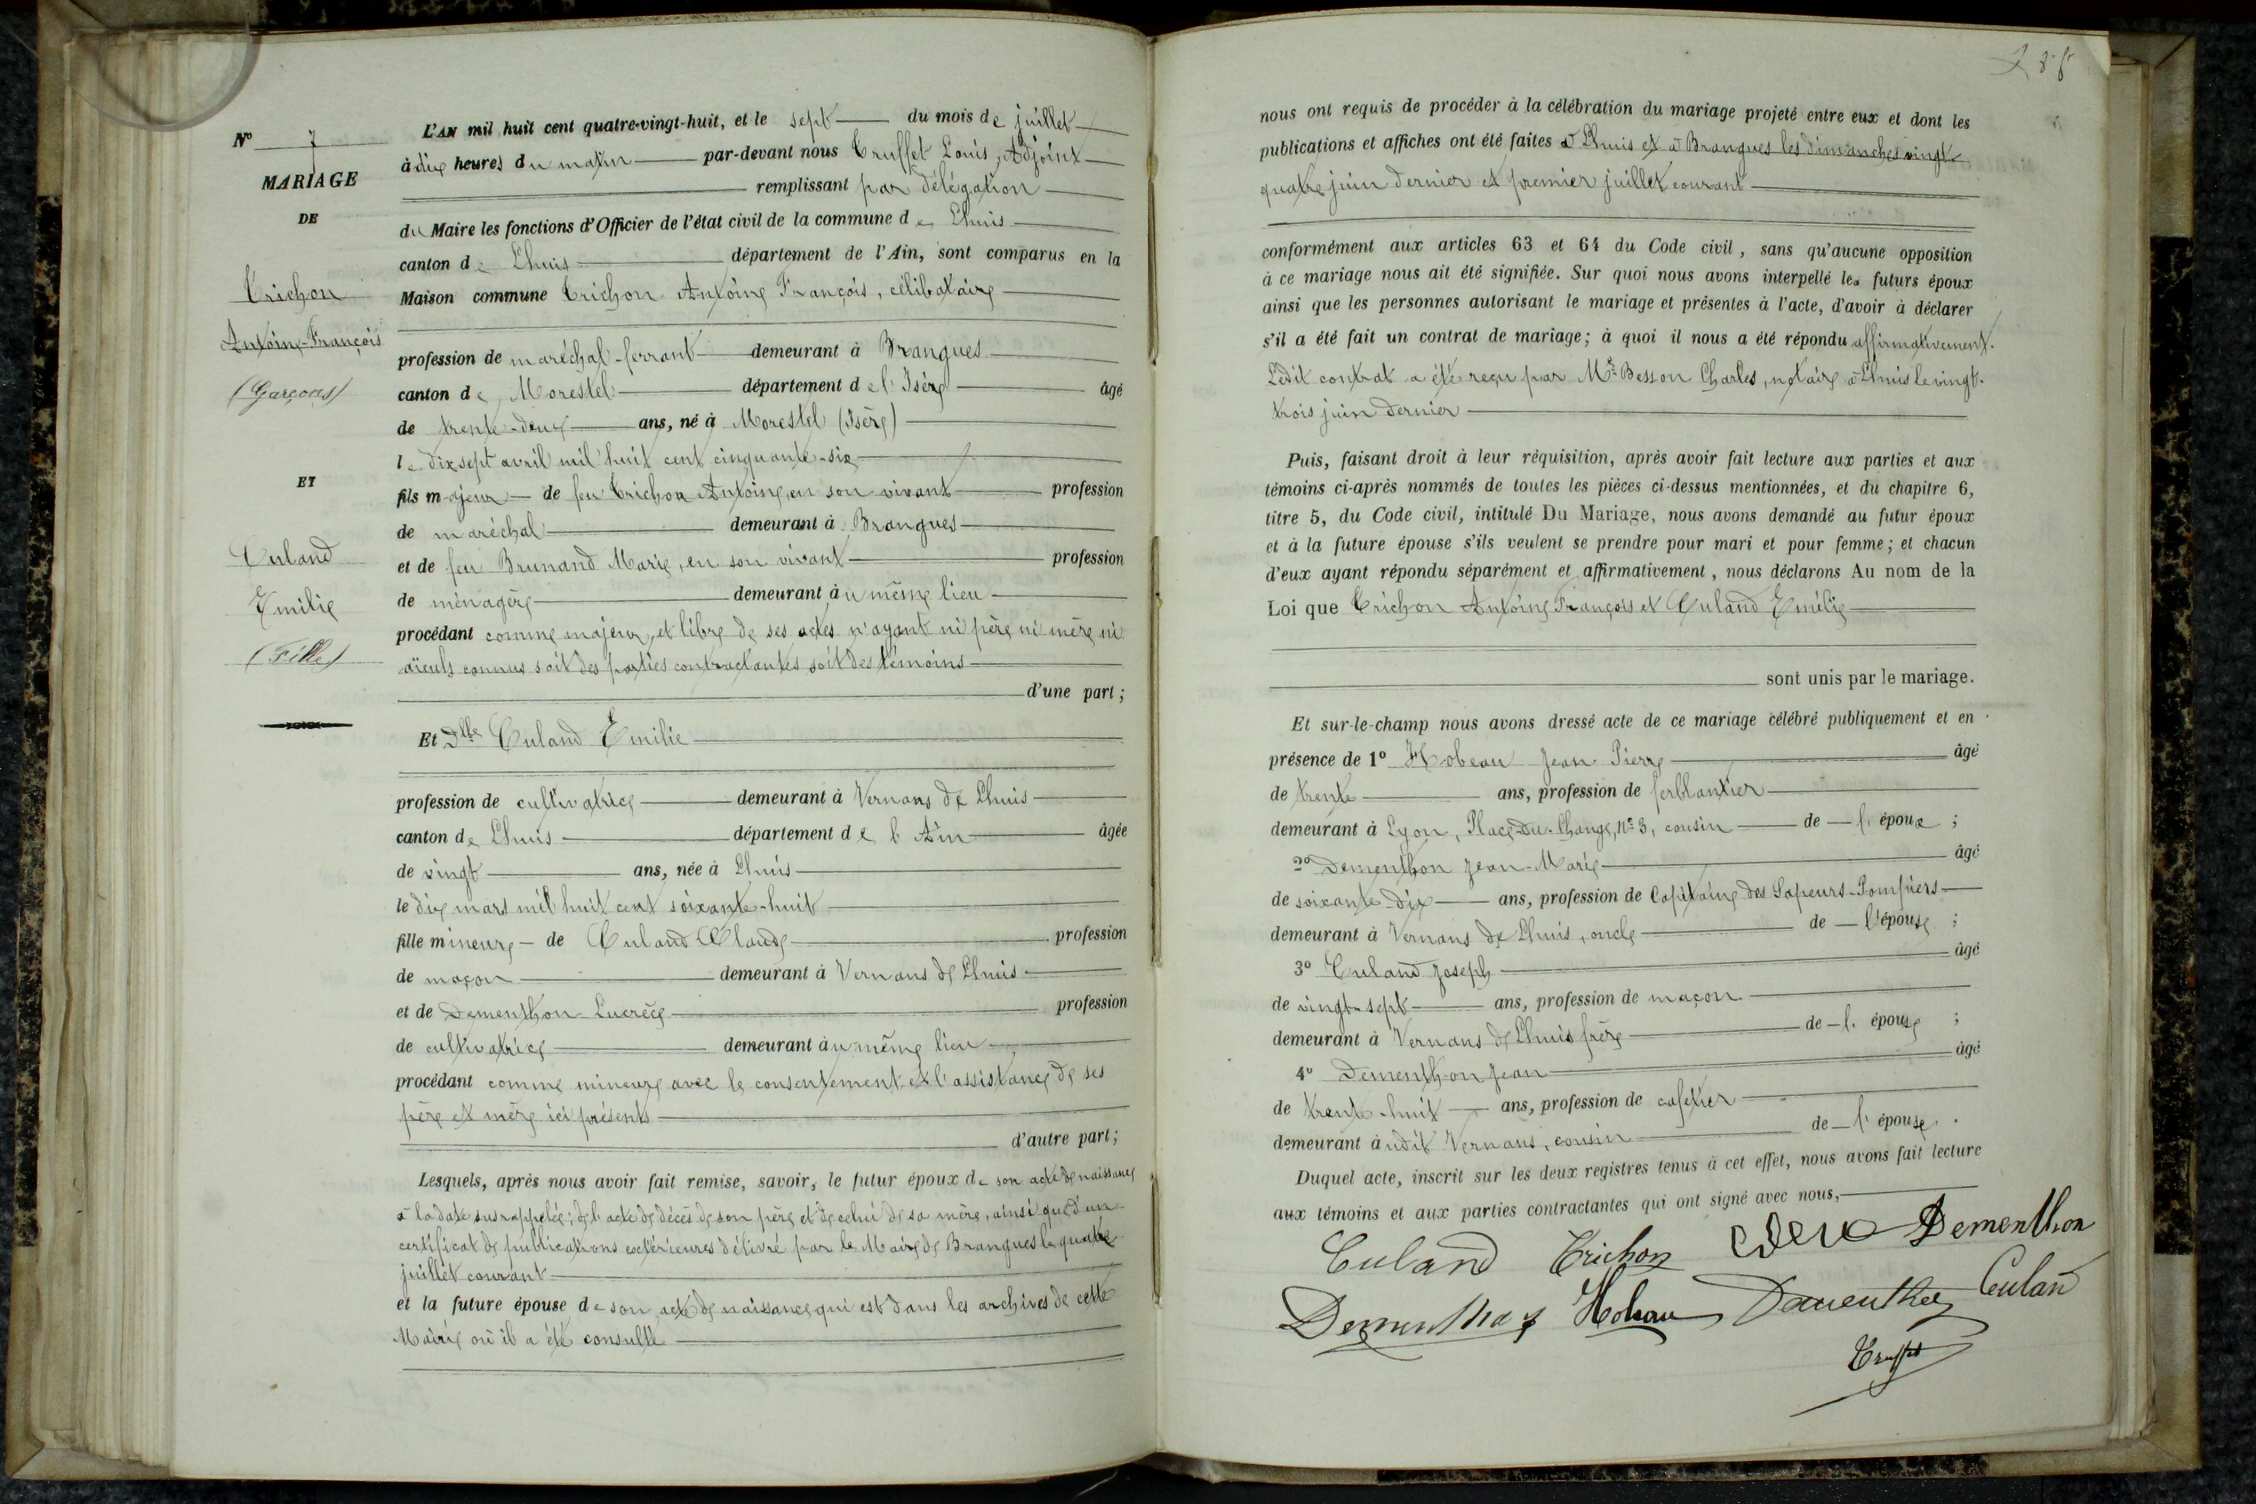 N° 7
MARIAGE
DE
Trichon
Antoine-François
(Garçons)
ET
Culand
Emilie
(Fille)
L'AN mil huit cent quatre-vingt-huit, et le sept du mois de juillet
à dix heures du matin par-devant nous Truffet Louis, Adjoint
remplissant par délégation
du Maire les fonctions d'Officier de l'état civil de la commune de Lhuis
canton de Lhuis département de l'Ain, sont comparus en la
Maison commune Trichon Antoine François, célibataire
profession de maréchal-ferrant demeurant à Brangues
canton de Morestel département de l'Isère âgé
de trente-deux ans, né à Morestel (Isère)
le dix sept avril mil huit cent cinquante-six
fils majeur de feu Trichon Antoine, en son vivant profession
de maréchal demeurant à Brangues
et de feu Brunand Marie, en son vivant profession
de ménagère demeurant au même lieu
procédant comme majeur, et libre de ses actes n'ayant ni père ni mère ni
aïeuls connus soit des parties contractantes soit des témoins
d'une part;
Et Dlle Culand Emilie
profession de cultivatrice demeurant à Vernans de Lhuis
canton de Lhuis département de l'Ain âgée
de vingt ans, née à Lhuis
le dix mars mil huit cent soixante-huit
fille mineure de Culand Claude profession
de maçon demeurant à Vernans de Lhuis
et de Dementhon Lucrèce profession
de cultivatrice demeurant au même lieu
procédant comme mineure avec le consentement et l'assistance de ses
père et mère ici présents
d'autre part;
Lesquels, après nous avoir fait remise, savoir, le futur époux de son acte de naissance
à la date susrappelée; de l'acte de décès de son père et de celui de sa mère, ainsi que d'un
certificat de publications extérieures délivré par le Maire de Brangues le quatre
juillet courant
et la future épouse de son acte de naissance qui est dans les archives de cette
Mairie où il a été consulté
nous ont requis de procéder à la célébration du mariage projeté entre eux et dont les
publications et affiches ont été faites à Lhuis et à Brangues les dimanches vingt-
quatre juin dernier et premier juillet courant
conformément aux articles 63 et 64 du Code civil, sans qu'aucune opposition
à ce mariage nous ait été signifiée. Sur quoi nous avons interpellé les futurs époux
ainsi que les personnes autorisant le mariage et présentes à l'acte, d'avoir à déclarer
s'il a été fait un contrat de mariage; à quoi il nous a été répondu affirmativement.
Ledit contrat a été reçu par Me Besson Charles, notaire à Lhuis le vingt-
trois juin dernier
Puis, faisant droit à leur réquisition, après avoir fait lecture aux parties et aux
témoins ci-après nommés de toutes les pièces ci-dessus mentionnées, et du chapitre 6,
titre 5, du Code civil, intitulé Du Mariage, nous avons demandé au futur époux
et à la future épouse s'ils veulent se prendre pour mari et pour femme; et chacun
d'eux ayant répondu séparément et affirmativement, nous déclarons Au nom de la
Loi que Trichon Antoine François et Culand Emélie
sont unis par le mariage.
Et sur-le-champ nous avons dressé acte de ce mariage célébré publiquement et en
présence de 1° Hobeau Jean Pierre âgé
de trente ans, profession de ferblantier
demeurant à Lyon, Place du Change, N° 3, cousin de l'époux;
2° Dementhon Jean-Marie âgé
de soixante dix ans, profession de Capitaine des Sapeurs-Pompiers
demeurant à Vernans de Lhuis, oncle de l'épouse;
3° Culand Joseph âgé
de vingt-sept ans, profession de maçon
demeurant à Vernans de Lhuis frère de l'épouse;
4° Dementhon Jean âgé
de trente-huit ans, profession de cafetier
demeurant audit Vernans, cousin de l'épouse.
Duquel acte, inscrit sur les deux registres tenus à cet effet, nous avons fait lecture
aux témoins et aux parties contractantes qui ont signé avec nous,
Culand Trichon Dementhon
Dementhon Hobeau Dementhon Culand
Truffet